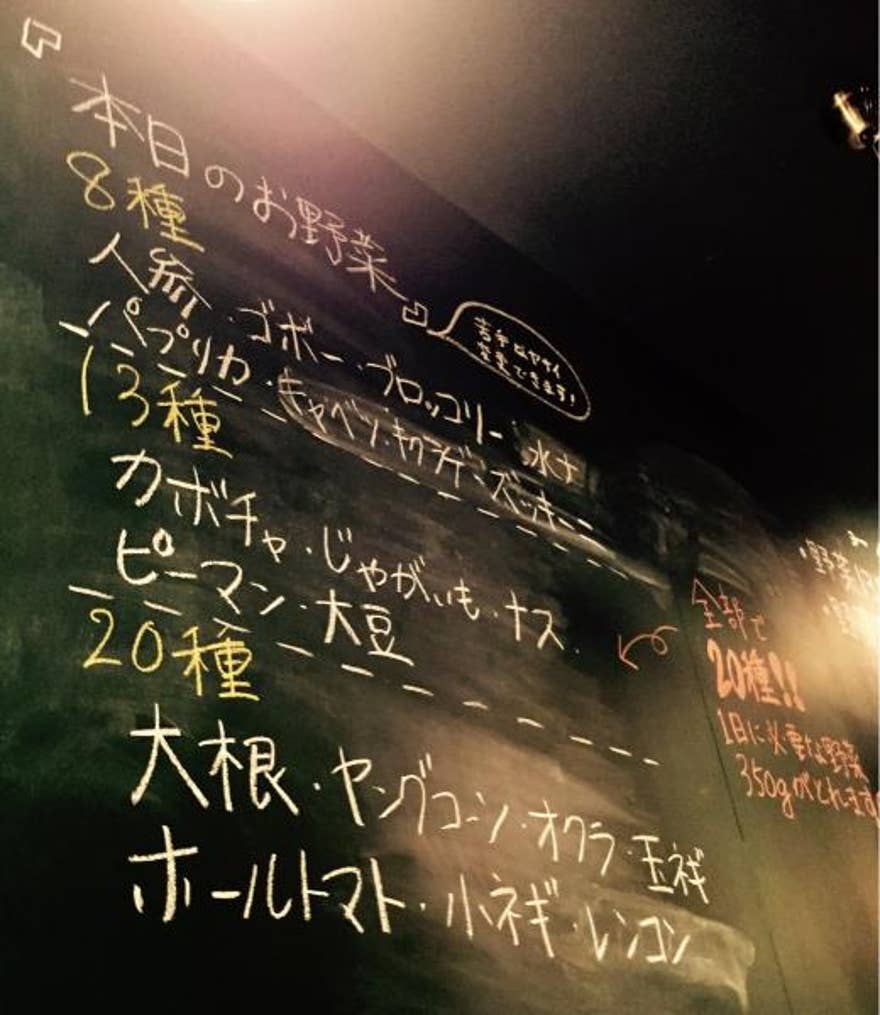 「本日のお野菜」
苦手なヤサイ
変更できます!
8種
人参・ゴボー・ブロッコリー・水ナ
パプリカ・キャベツ・キクラゲ・ズッキーニ
13種
カボチャ・じゃがいも・ナス・
ピーマン・大豆
20種
大根・ヤングコーン・オクラ・玉ネギ
ホールトマト・小ネギ・レンコン
全部で
20種!!
1日に必要な野菜
350gがとれます